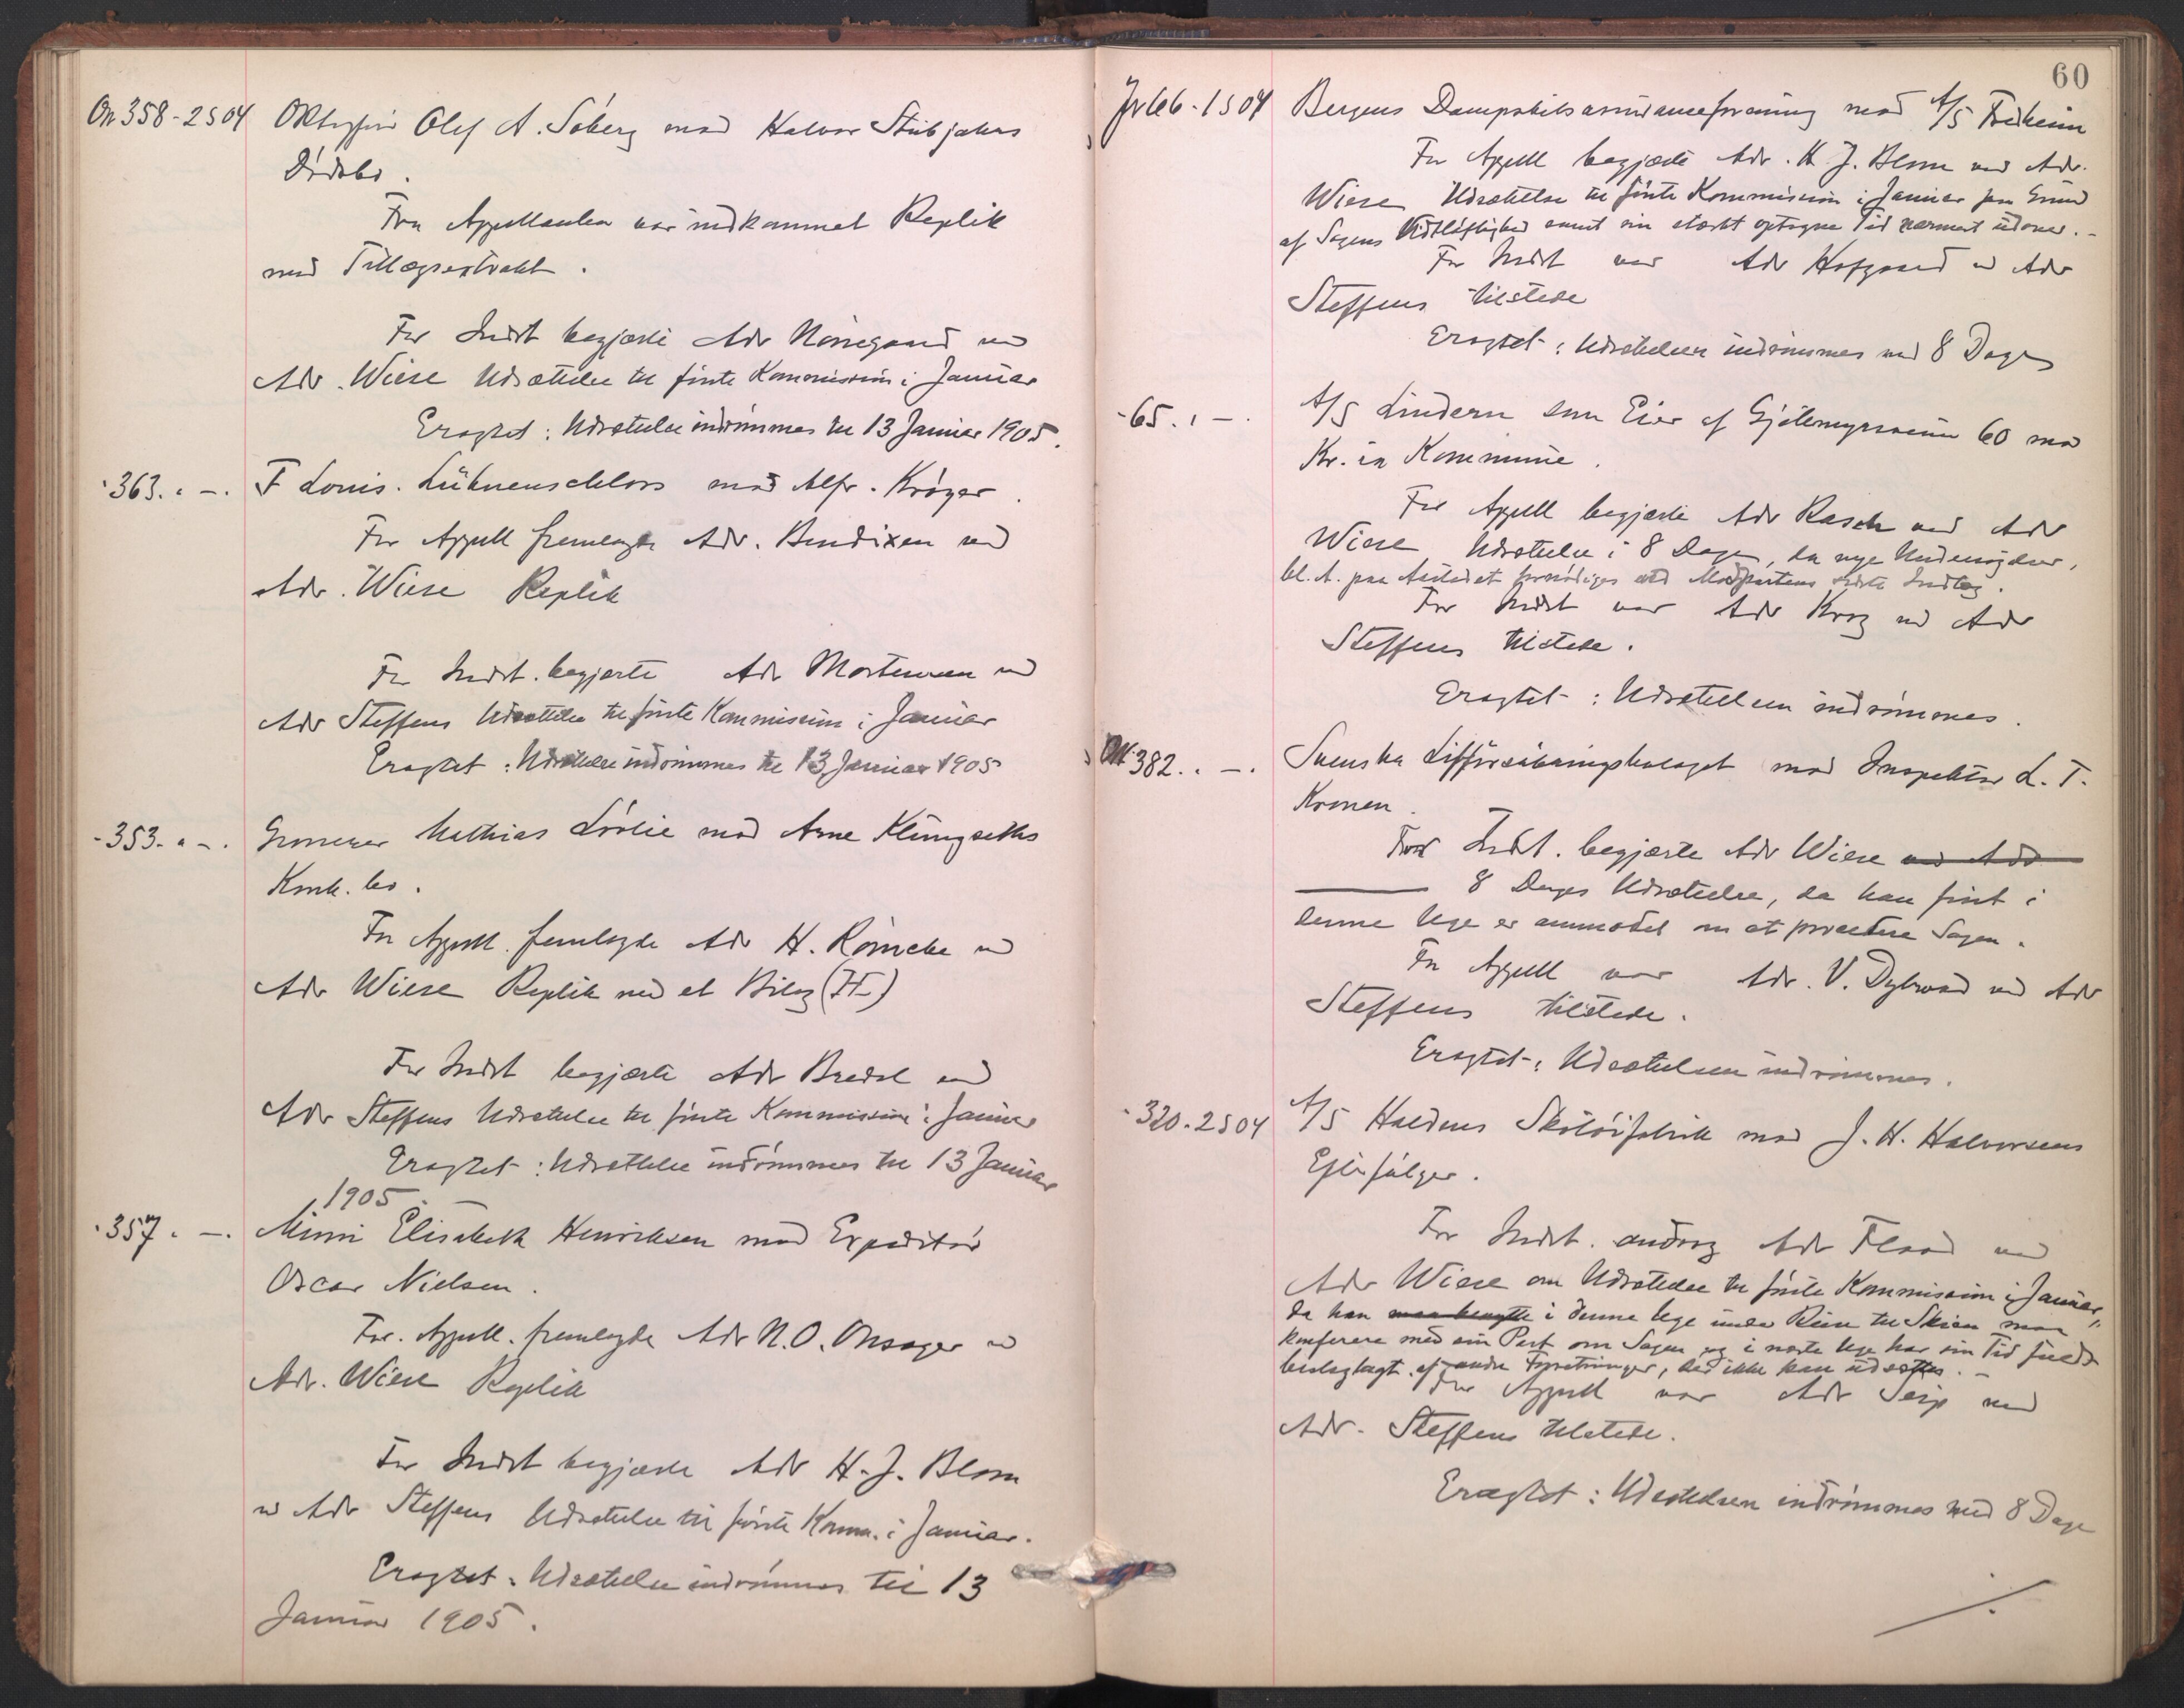 On 358-2 S 04 Olaf A. Söberg mod Halvor Stubjahns
Dödsbo.
Fra Appellanten var indkommet Replik
med Tillægsextrakt.
For Indst begjærte Adv Nörregaard ved
Adv. Wiese Udsættelse til förste Kommission i Januar
Eragtet: Udsættelse indrömmes til 13 Januar 1905.
-363. " —. F Louis. Lühnenschloss mod Alfr. Kröyer.
For Appell fremlagde Adv. Bendixen ved
Adv. Wiese Replik
For Indst. begjærte Adv Mortensen ved
Adv Steffens Udsættelse til förste Kommission i Januar
Eragtet: Udsættelse indrömmes til 13 Januar 1905
-353. " —. Mathias Lörlie mod Arne Klungseths
Konk. bo.
For Appell. fremlagde Adv H. Röncke ved
Adv Wiese Replik med et Bilag (H)
For Indst begjærte Adv Bredal ved
Adv Steffens Udsættelse til förste Kommission i Januar
Eragtet: Udsættelse indrömmes til 13 Januar
1905.
-357. —. Mimi Elisabeth Henriksen mod Expeditör
Oscar Nielsen.
For. Appell. fremlagde Adv N. O. Onsager ved
Adv. Wiese Replik
For Indst begjærte Adv H. J. Blom
ved Adv Steffens Udsættelse til förste Komm. i Januar.
Eragtet: Udsættelse indrömmes til 13
Januar 1905.
60
66-1 S 04 Bergens Dampskibsassuranceforening mod A/S Fredheim
For Appell begjærte Adv. H. J. Blom ved Adv.
Wiese Udsættelse til förste Kommission i Januar paa Grund
af Sagens Vidtløftighed samt sin stærkt optagne Tid nærmest udover.-
For Indst var Adv Hofgaard ved Adv
Steffens tilstede
Eragtet: Udsættelsen indrömmes med 8 Dage
-65. " —. A/S Lindern som Eier af Gjetemyrsveien 60 mod
Kr.ia Kommune.
For Appell begjærte Adv Rasch ved Adv
Wiese Udsættelse i 8 Dage, da nye Undersøgelser,
bl. A. paa Aastedet fornödiges ved Modpartens sidste Indlæg.
For Indst var Adv Krog ved Adv
Steffens tilstede.
Eragtet: Udsættelsen indrömmes.
On 382. " —. Svenska Lifförsäkringsbolaget mod Inspektör L. T.
Kronen.
For Indst. begjærte Adv Wiese ved Adv
8 Dages Udsættelse, da han först i
denne Uge er anmodet om at procedere Sagen.
For Appell var Adv. V. Dybwad ved Adv
Steffens tilstede.
Eragtet: Udsættelsen indrömmes.
-320-2 S 04 A/S Haldens Skotöifabrik mod J. H. Halvorsens
Efterfölger.
For Indst. androg Adv Flood ved
Adv Wiese om Udsættelse til förste Kommission i Januar,
da han i denne Uge under Reise til Skien maa
konferere med sin Part om Sagen og i næste Uge har sin Tid fuldt
beslaglagt af andre Forretninger, der ikke kan udsættes.-
For Appell var Adv Seip ved
Adv. Steffens tilstede.
Eragtet: Udsættelsen indrömmes med 8 Dage